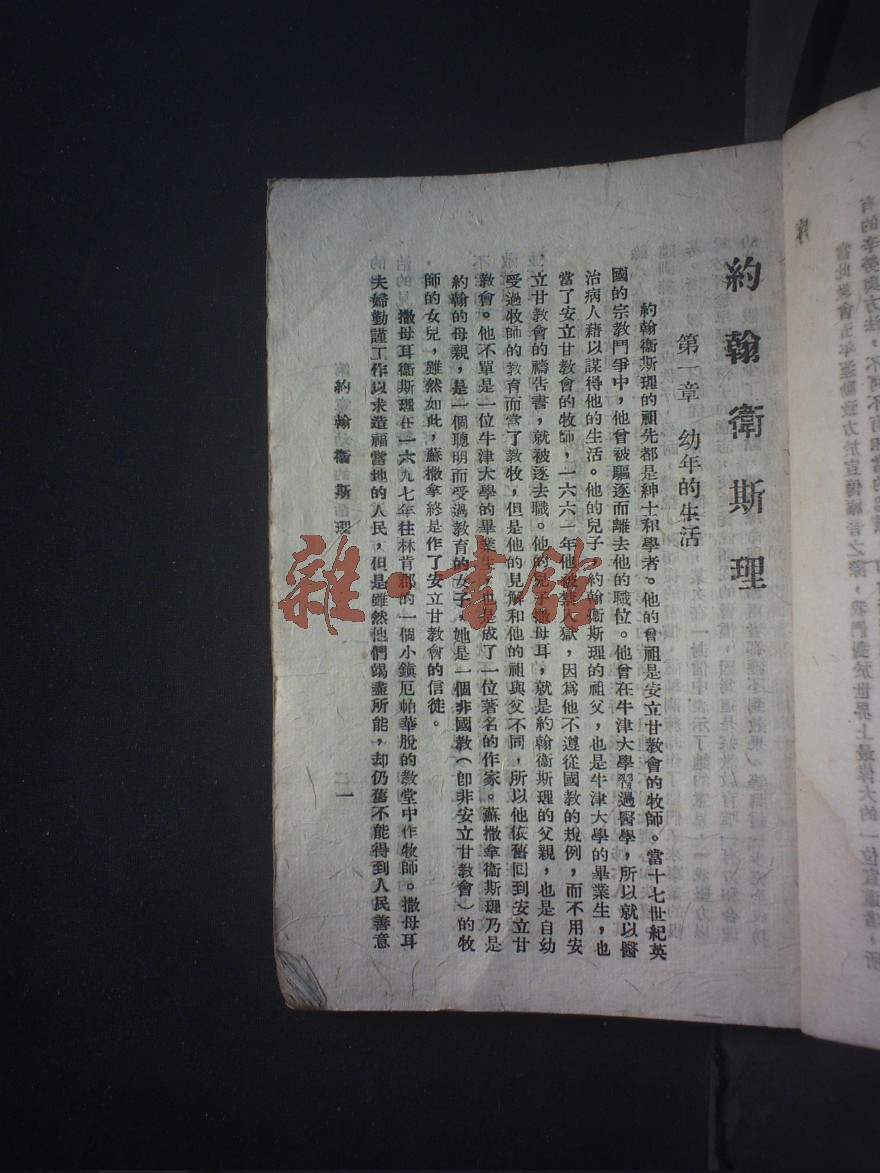 約翰衛斯理
第一章 幼年的生活
約翰衛斯理的祖先都是紳士和學者。他的曾祖是安立甘教會的牧師。當十七世紀英
國的宗教鬥爭中，他曾被驅逐而離去他的職位。他曾在牛津大學習過醫學，所以就以醫
治病人藉以謀得他的生活。他的兒子，約翰衛斯理的祖父，也是牛津大學的畢業生，也
當了安立甘教會的牧師，一六六一年他被禁入獄，因爲他不遵從國教的規例，而不用安
立甘教會的禱告書，就被逐去職。他的兒子撒母耳，就是約翰衛斯理的父親，也是自幼
受過牧師的教育而當了教牧，但是他的見解和他的祖與父不同，所以他依舊回到安立甘
教會。他不單是一位牛津大學的畢業生，也是成了一位著名的作家。蘇撒拿衛斯理乃是
約翰的母親，是一個聰明而受過教育的女子，她是一個非國教（卽非安立甘教會）的牧
師的女兒，雖然如此，蘇撒拿終是作了安立甘教會的信徒。
撒母耳衛斯理在一六九七年往林肯郡的一個小鎮厄帕華脫的教堂中作牧師。撒母耳
夫婦勤謹工作以求造福當地的人民，但是雖然他們竭盡所能，却仍舊不能得到人民善意
約翰衛斯理
一
雜·書館